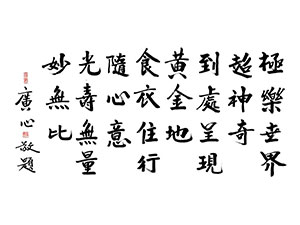 極樂世界
超神奇
到處呈現
黃金地
食衣住行
隨心意
光壽無量
妙無比
廣心敬題